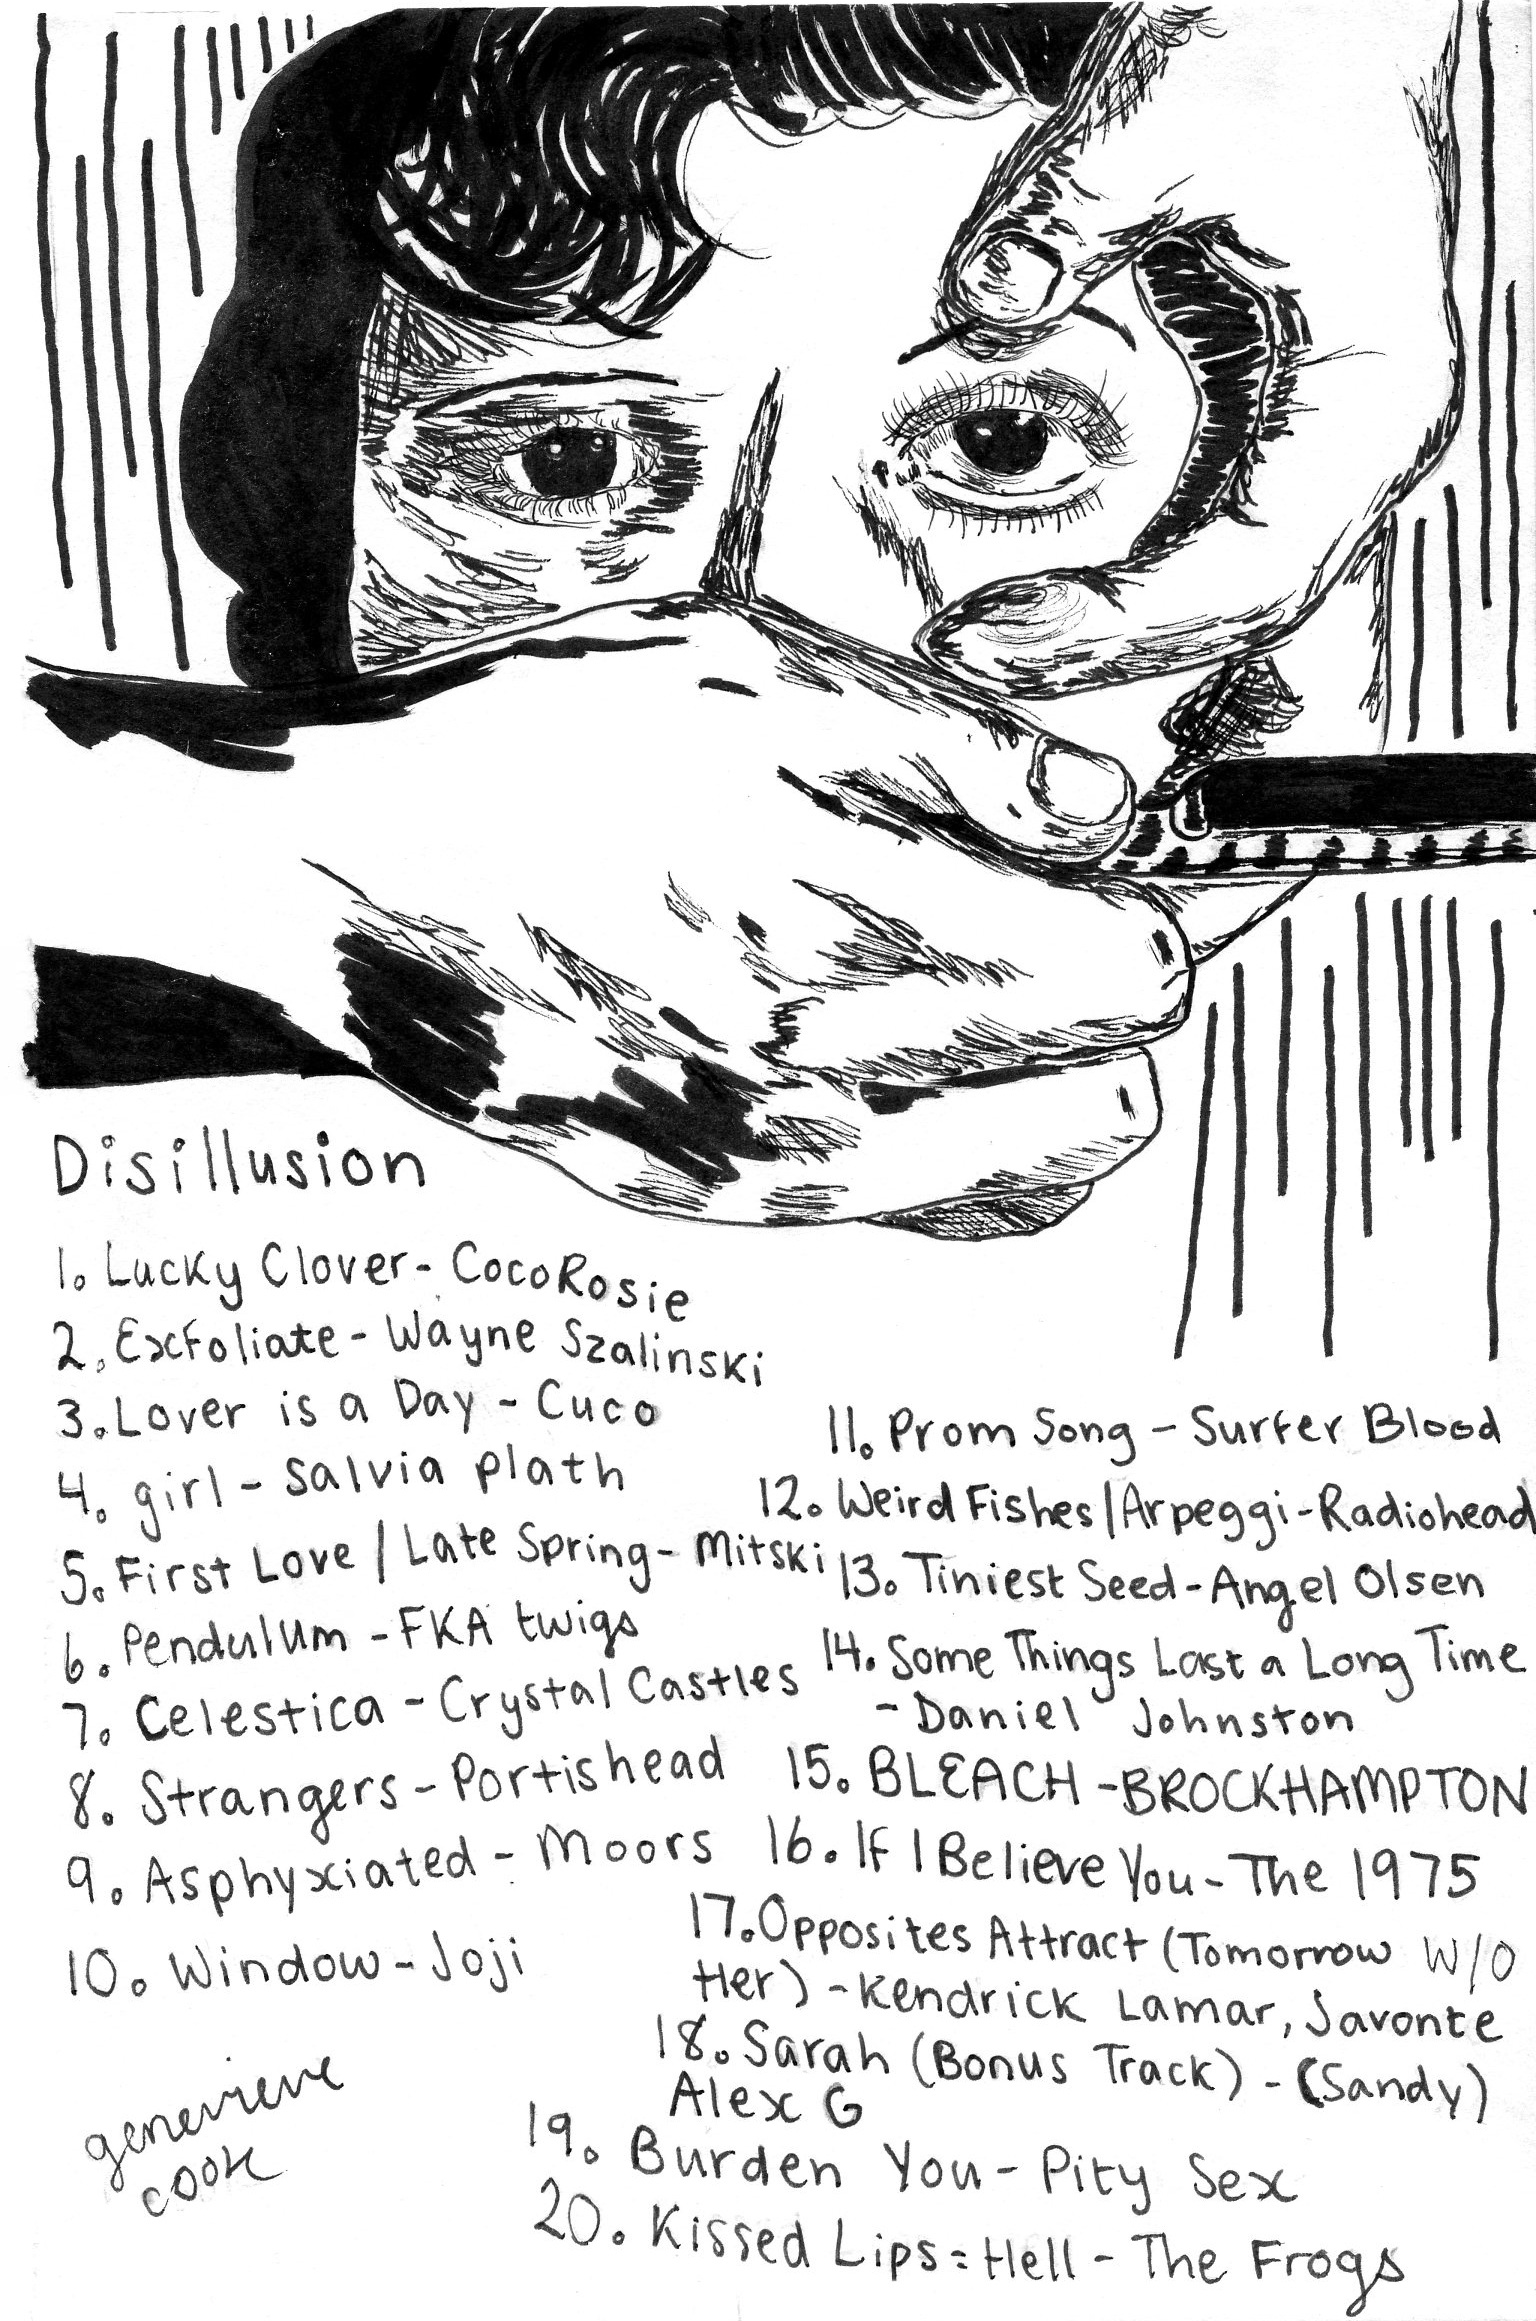 Disillusion
1. Lucky Clover- CocoRosie
2. Exfoliate- Wayne Szalinski
3. Lover is a Day - Cuco
4. girl - Salvia plath
5. First Love / Late Spring- Mitski
6. Pendulum -FKA twigs
7. Celestica - Crystal Castles
8. Strangers - Portishead
9. Asphyxiated - Moors
10. Window - Joji
genevieve
cook
11. Prom Song - Surfer Blood
12. Weird Fishes/Arpeggi-Radiohead
13. Tiniest Seed-Angel Olsen
14. Some Things Last a Long Time
- Daniel Johnston
15. BLEACH -BROCKHAMPTON
16. If I Believe You- The 1975
17. Opposites Attract (Tomorrow W/O
Her) - Kendrick Lamar, Javonte
18. Sarah (Bonus Track) - (Sandy)
Alex G
19. Burden You- Pity Sex
20. Kissed Lips=Hell - The Frogs